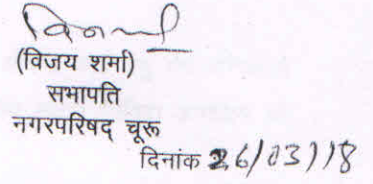 (विजय शर्मा)
सभापति
नगरपरिषद् चूरू
दिनांक 26/03/18